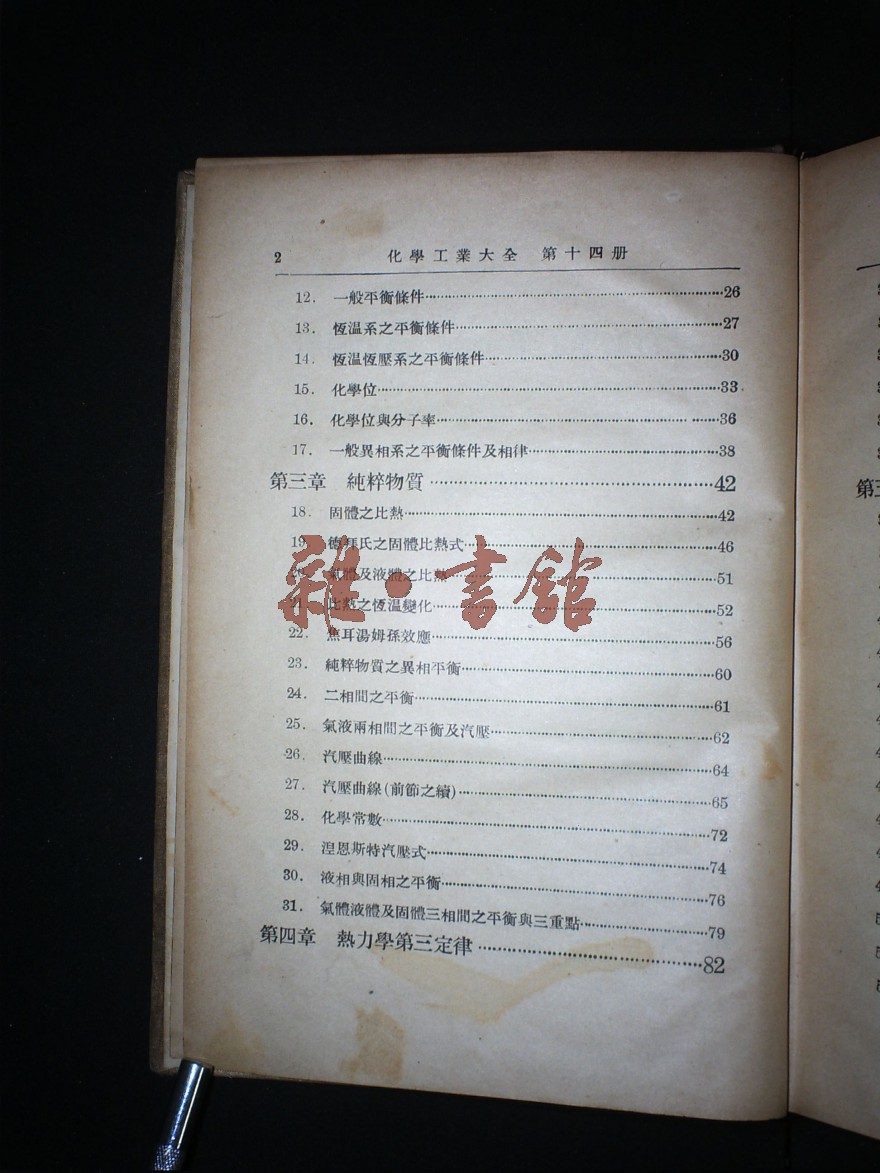 2 化學工業大全 第十四册
12. 一般平衡條件……26
13. 恆温系之平衡條件……27
14. 恆温恆壓系之平衡條件……30
15. 化學位……33
16. 化學位與分子率……36
17. 一般異相系之平衡條件及相律……38
第三章 純粹物質……42
18. 固體之比熱……42
19. 德拜氏之固體比熱式……46
20. 氣體及液體之比熱……51
21. 比熱之恆温變化……52
22. 焦耳湯姆孫效應……56
23. 純粹物質之異相平衡……60
24. 二相間之平衡……61
25. 氣液兩相間之平衡及汽壓……62
26. 汽壓曲線……64
27. 汽壓曲線(前節之續)……65
28. 化學常數……72
29. 湼恩斯特汽壓式……74
30. 液相與固相之平衡……76
31. 氣體液體及固體三相間之平衡與三重點……79
第四章 熱力學第三定律……82
雜·書館
第三